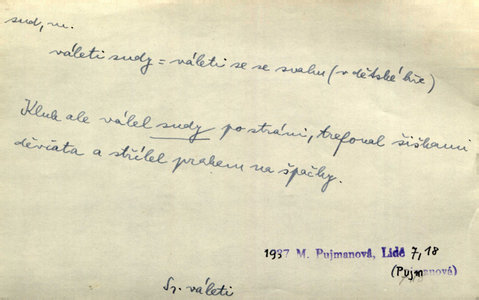 sud, m.
váleti sudy = váleti se se svahu (v dětské hře)
Kluk ale válel sudy po stráni, trefoval šiškami
děvčata a střílel prakem na špačky.
1937 M. Pujmanová, Lidé 7,18
(Pujmanová)
Sr. váleti